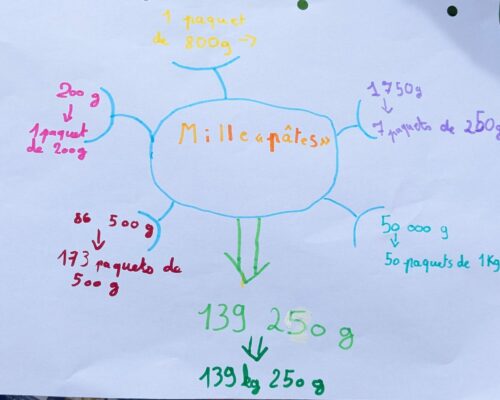 1 paquet
de 800g →
200 g
↓
1 paquet
de 200g
1750g
↓
7 paquets de 250g
Mille «pâtes»
86 500g
↓
173 paquets de
500 g
50 000 g
↓
50 paquets de 1Kg
139 250 g
139 kg 250 g